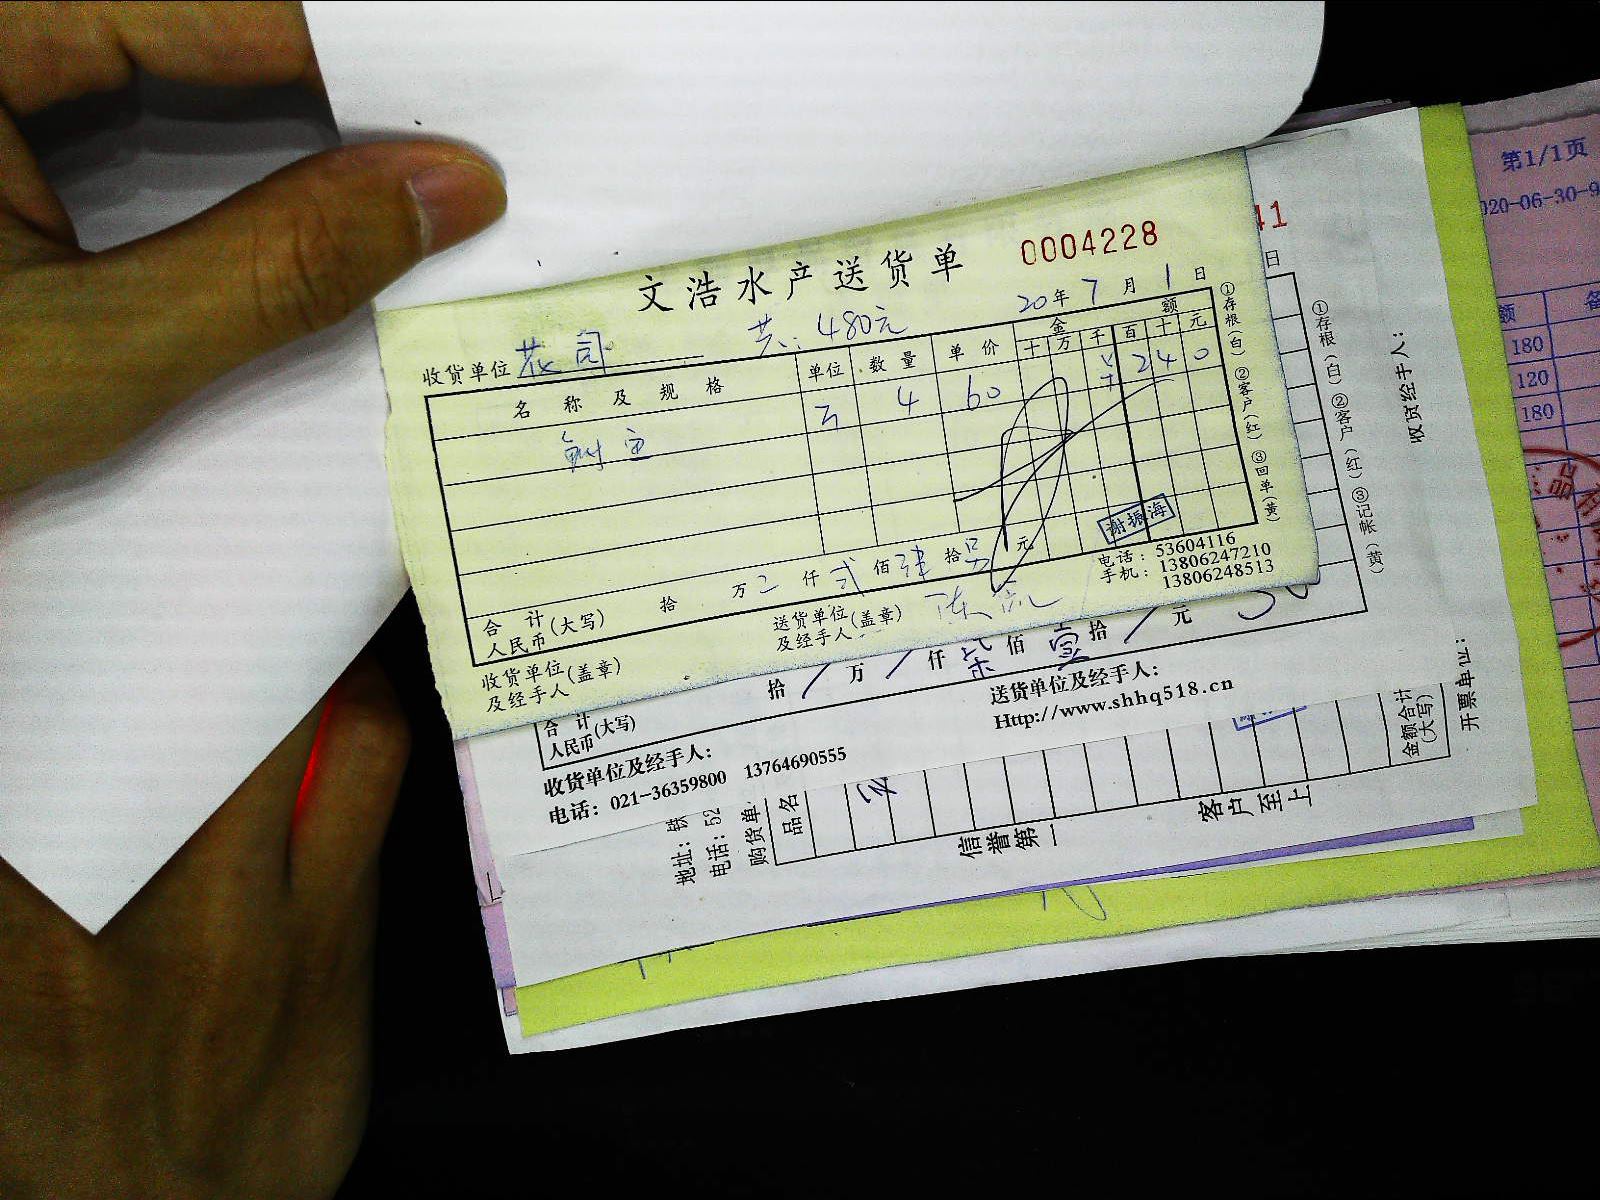 文浩水产送货单
0004228
20年7月1日
收货单位
共:480元
名称及规格 单位 数量 单价 金额
十万千百十元
4 60 ¥240
①存根(白)②客户(红)③回单(黄)
谢振海
合计
人民币(大写) 拾 万 仟贰佰肆拾 元
收货单位(盖章)
及经手人
送货单位(盖章)
及经手人
电话:53604116
手机:13806247210
13806248513
41
日
①存根(白)②客户(红)③记帐(黄)
合计
人民币(大写) 拾/万/仟柒佰壹拾/元
收货单位及经手人:
送货单位及经手人:
Http://www.shhq518.cn
电话:021-36359800 13764690555
收货经手人:
地址:铁
电话:52
购货单
品名
信誉第一
客户至上
金额合计
(大写)
开票单位:
第1/1页
020-06-30-9
额 备
180
120
180